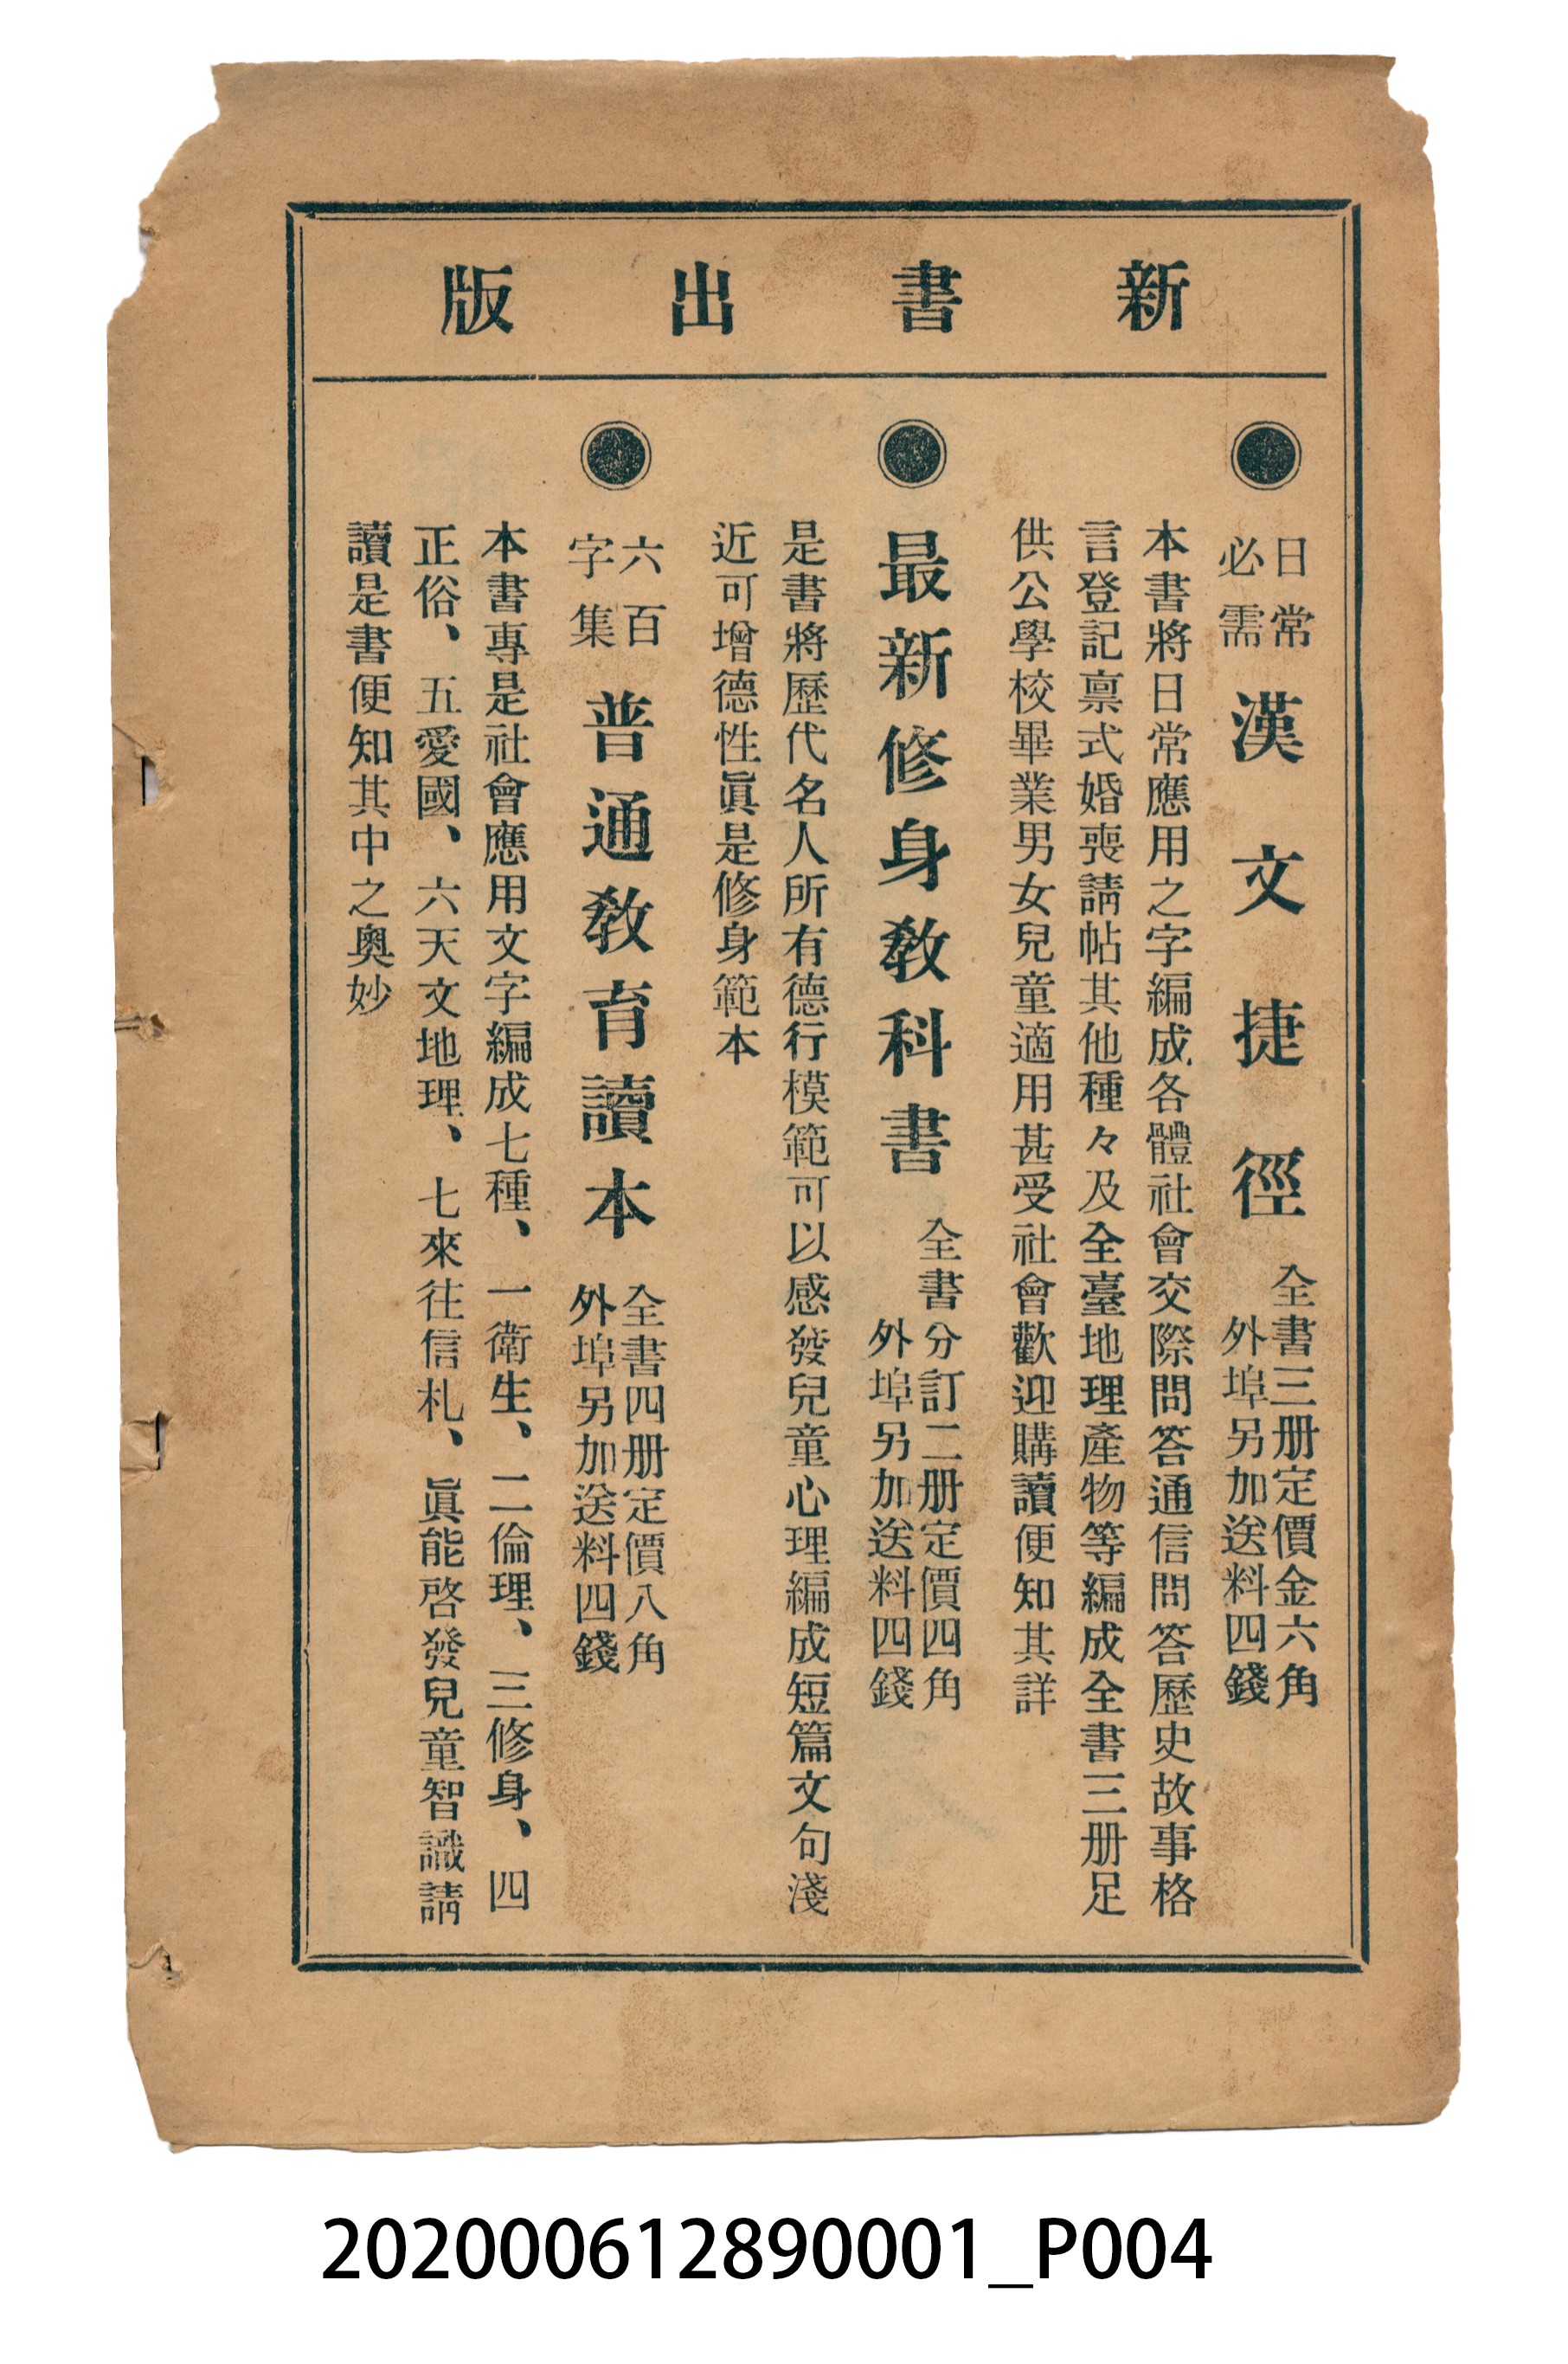 新書出版
●
日常
必需
漢文捷徑
全書三册定價金六角
外埠另加送料四錢
本書將日常應用之字編成各體社會交際問答通信問答歷史故事格
言登記禀式婚喪請帖其他種々及全臺地理產物等編成全書三册足
供公學校畢業男女兒童適用甚受社會歡迎購讀便知其詳
●
最新修身敎科書
全書分訂二册定價四角
外埠另加送料四錢
是書將歷代名人所有德行模範可以感發兒童心理編成短篇文句淺
近可增德性眞是修身範本
●
六百
字集
普通敎育讀本
全書四册定價八角
外埠另加送料四錢
本書專是社會應用文字編成七種、一衛生、二倫理、三修身、四
正俗、五愛國、六天文地理、七來往信札、眞能啓發兒童智識請
讀是書便知其中之奧妙
202000612890001_P004